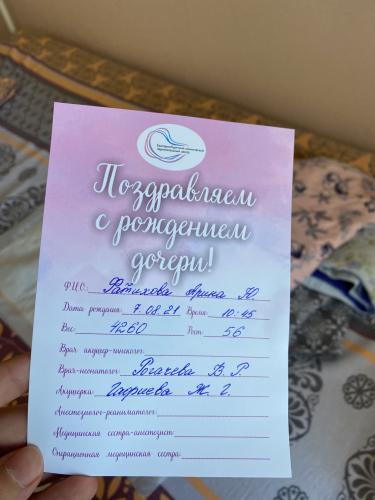 Екатеринбургский клинический
перинатальный центр
Поздравляем
с рождением
дочери!
Ф.И.О. Фатихова Арина Ю.
Дата рождения: 7.08.21 Время: 10:45
Вес: 4260 Рост: 56
Врач акушер-гинеколог:
Врач-неонатолог: Рогачева В. Р.
Акушерка: Гафиева Ж. Г.
Анестезиолог-реаниматолог:
Медицинская сестра-анестезист:
Операционная медицинская сестра: